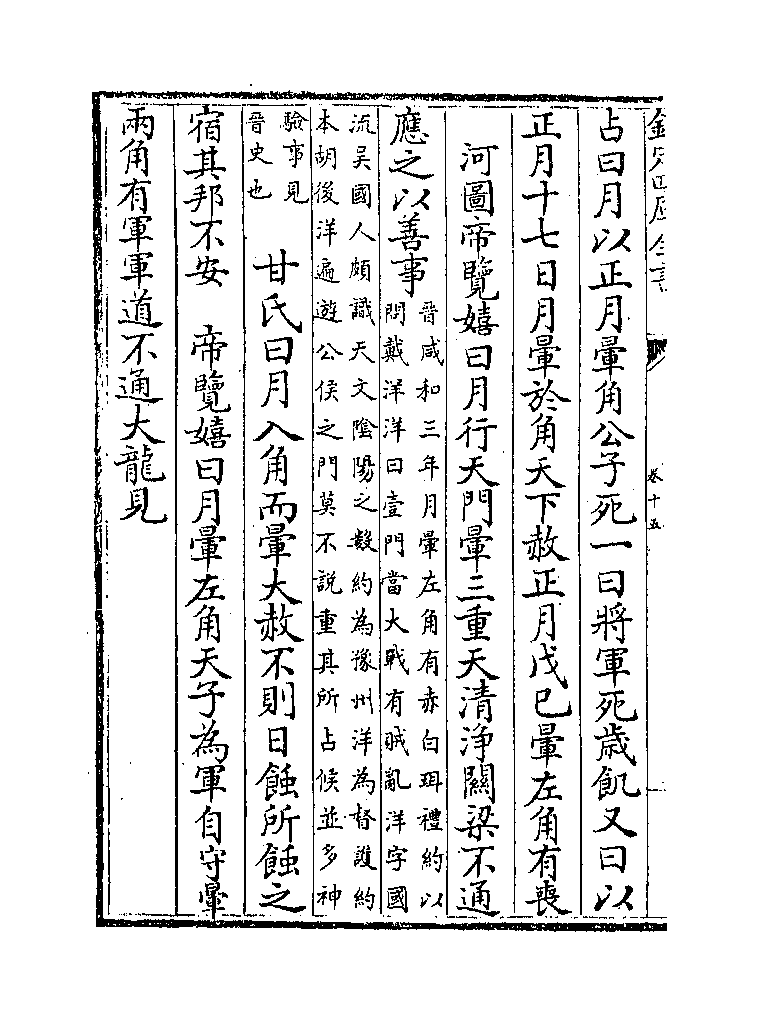 欽定四庫全書
卷十五
占曰月以正月暈角公子死一曰將軍死歲飢又曰以
正月十七日月暈於角天下赦正月戊巳暈左角有喪
河圖帝覽嬉曰月行天門暈三重天清淨關梁不通
應之以善事
晉咸和三年月暈左角有赤白珥禮約以
問戴洋洋曰壹門當大戰有賊亂洋字國
流吳國人頗識天文陰陽之數約為豫州洋為督護約
本胡後洋遍遊公侯之門莫不說重其所占候並多神
驗事見
晉史也
甘氏曰月入角而暈大赦不則日蝕所蝕之
宿其邦不安　帝覽嬉曰月暈左角天子為軍自守暈
兩角有軍軍道不通大龍見